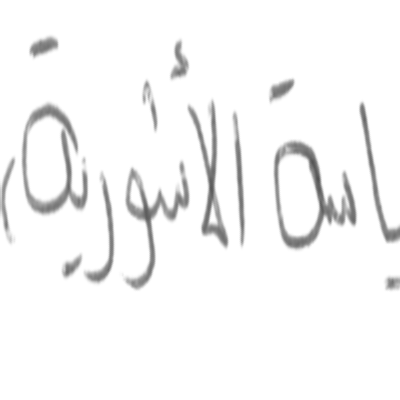 ياسة الأشورية،